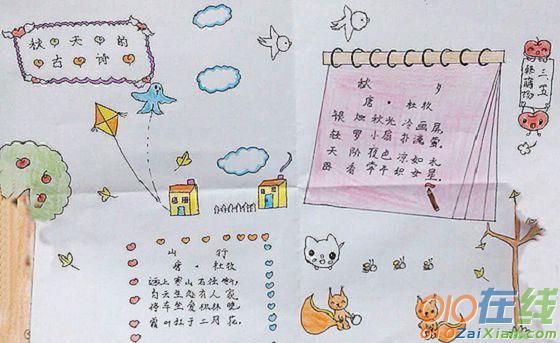 秋天的
古诗
秋 夕
唐·杜牧
银烛秋光冷画屏,
轻罗小扇扑流萤.
天阶夜色凉如水,
卧看牵牛织女星.
山 行
唐·杜牧
远上寒山石径斜,
白云生处有人家,
停车坐爱枫林晚,
霜叶红于二月花.
010在线
010ZaiXian.Com